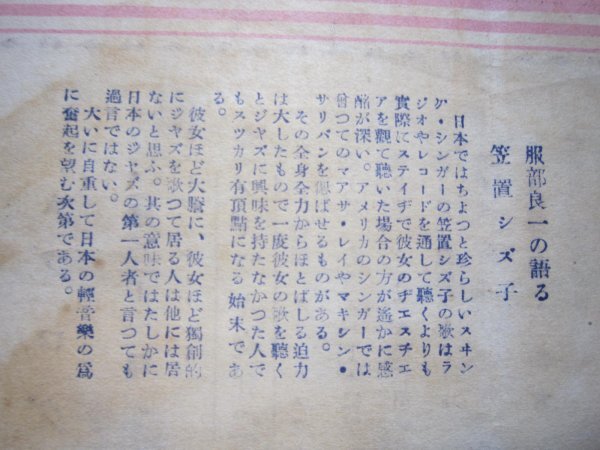 服部良一の語る
笠置シズ子
日本ではちよつと珍らしいスヰン
グ・シンガーの笠置シズ子の歌はラ
ジオやレコードを通して聴くよりも
實際にステイヂで彼女のヂエスチエ
アを觀て聴いた場合の方が遙かに感
銘が深い。アメリカのシンガーでは
曾つてのマアサ・レイやマキシン・
サリバンを偲ばせるものがある。
その全身全力からほとばしる迫力
は大したもので一度彼女の歌を聽く
とジヤズに興味を持たなかつた人で
もスツカリ有頂點になる始末であ
る。
彼女ほど大膽に、彼女ほど獨創的
にジヤズを歌つて居る人は他には居
ないと思ふ。其の意味ではたしかに
日本のジヤズの第一人者と言つても
過言ではない。
大いに自重して日本の輕音樂の爲
に奮起を望む次第である。